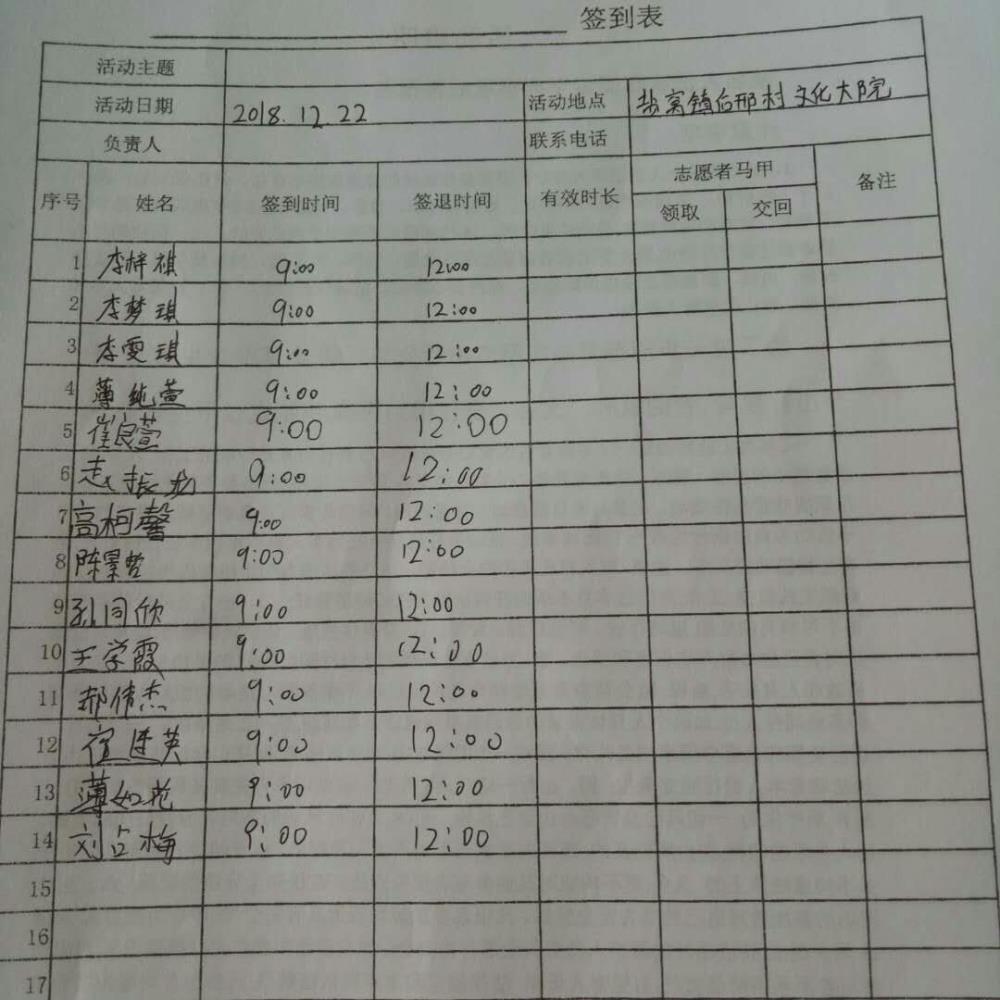 签到表
活动主题
活动日期 2018.12.22 活动地点 盐窝镇后邢村文化大院
负责人 联系电话
序号 姓名 签到时间 签退时间 有效时长 志愿者马甲 备注
领取 交回
1 李梓祺 9:00 12:00
2 李梦琪 9:00 12:00
3 李雯琪 9:00 12:00
4 薄纯萱 9:00 12:00
5 崔良萱 9:00 12:00
6 赵振 9:00 12:00
7 高柯馨 9:00 12:00
8 陈景哲 9:00 12:00
9 孙同欣 9:00 12:00
10 王学霞 9:00 12:00
11 郝伟杰 9:00 12:00
12 英 9:00 12:00
13 薄如苑 9:00 12:00
14 刘占梅 9:00 12:00
15
16
17